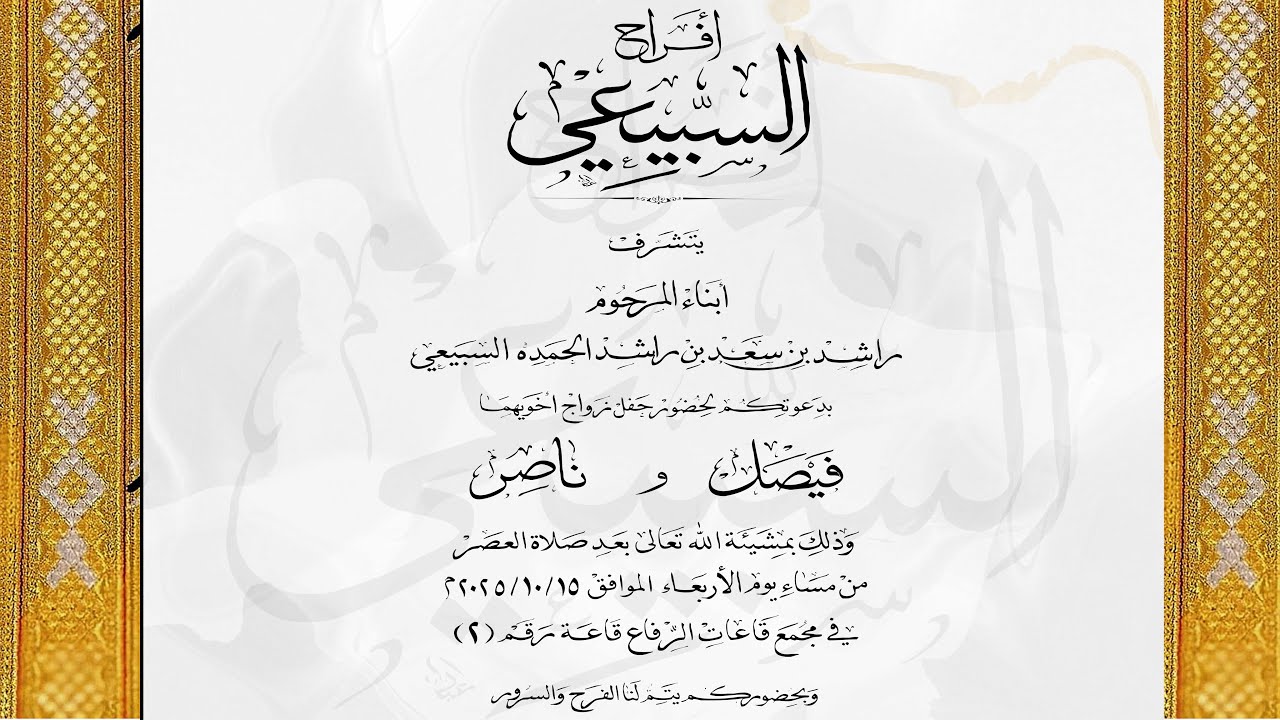 أفراح
السبيعي
يتشرف
أبناء المرحوم
راشد بن سعد بن راشد الحمده السبيعي
بدعوتكم لحضور حفل زواج أخويهما
فيصل و ناصر
وذلك بمشيئة الله تعالى بعد صلاة العصر
من مساء يوم الأربعاء الموافق ٢٠٢٥/١٠/١٥م
في مجمع قاعات الرفاع قاعة رقم (٢)
وبحضوركم يتم لنا الفرح والسرور